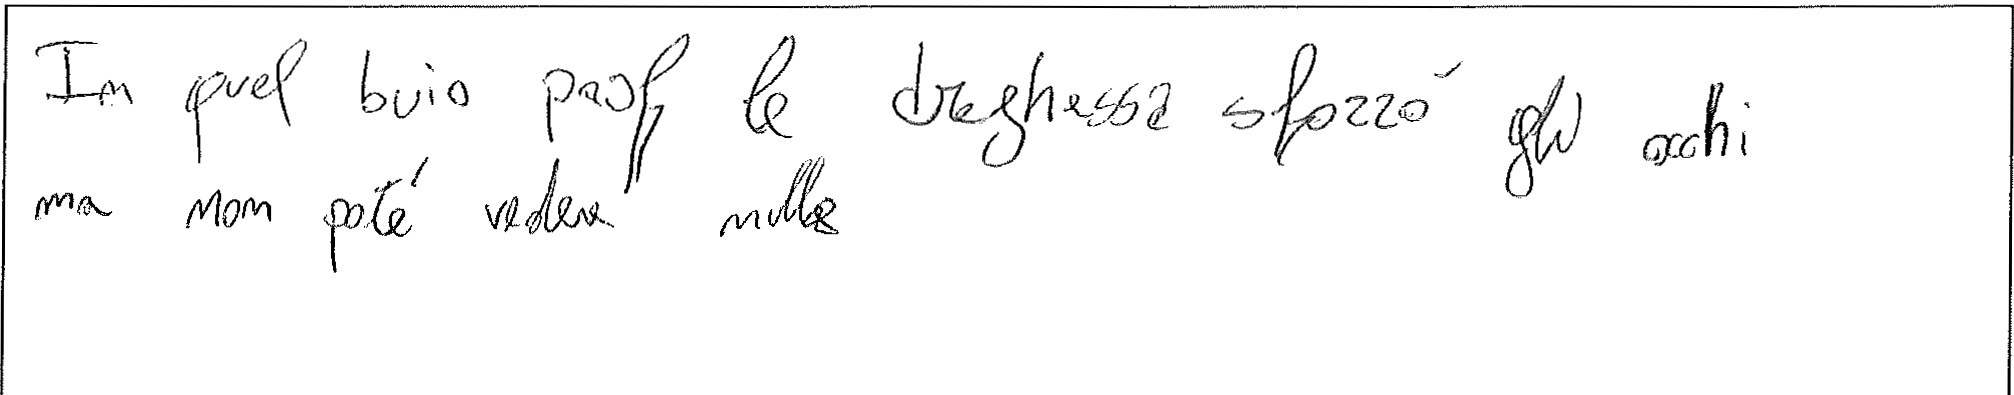 In quel buio prof, la draghessa sfozzó gli occhi
ma non poté vedere nulla